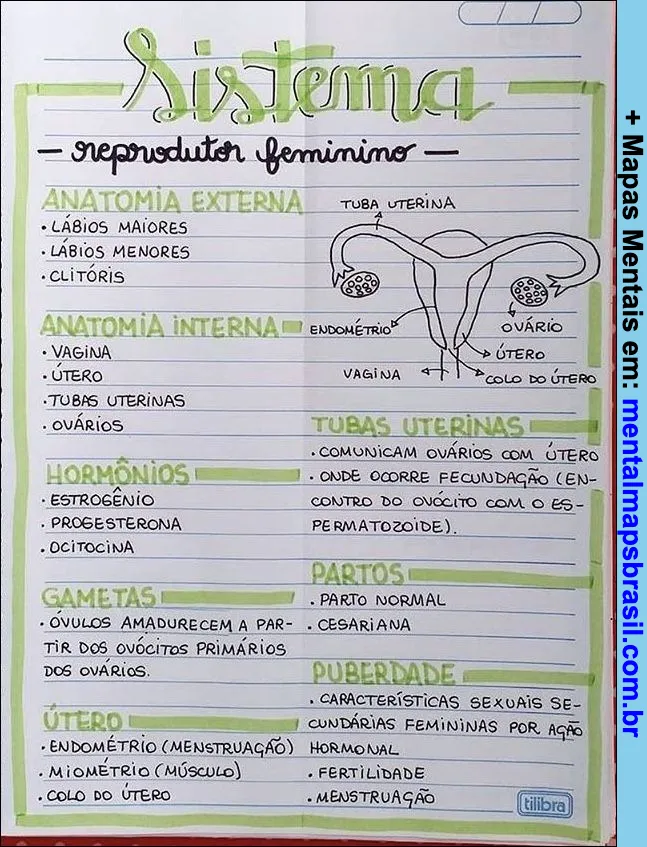 Sistema
- reprodutor feminino -
ANATOMIA EXTERNA
• LÁBIOS MAIORES
• LÁBIOS MENORES
• CLITÓRIS
ANATOMIA INTERNA
• VAGINA
• ÚTERO
• TUBAS UTERINAS
• OVÁRIOS
HORMÔNIOS
• ESTROGÊNIO
• PROGESTERONA
• OCITOCINA
GAMETAS
• ÓVULOS AMADURECEM A PAR-
TIR DOS OVÓCITOS PRIMÁRIOS
DOS OVÁRIOS.
ÚTERO
• ENDOMÉTRIO (MENSTRUAÇÃO)
• MIOMÉTRIO (MÚSCULO)
• COLO DO ÚTERO
TUBA UTERINA
ENDOMÉTRIO
OVÁRIO
ÚTERO
VAGINA
COLO DO ÚTERO
TUBAS UTERINAS
• COMUNICAM OVÁRIOS COM ÚTERO
• ONDE OCORRE FECUNDAÇÃO (EN-
CONTRO DO OVÓCITO COM O ES-
PERMATOZOIDE).
PARTOS
• PARTO NORMAL
• CESARIANA
PUBERDADE
• CARACTERÍSTICAS SEXUAIS SE-
CUNDÁRIAS FEMININAS POR AÇÃO
HORMONAL
• FERTILIDADE
• MENSTRUAÇÃO
tilibra
+ Mapas Mentais em: mentalmapsbrasil.com.br